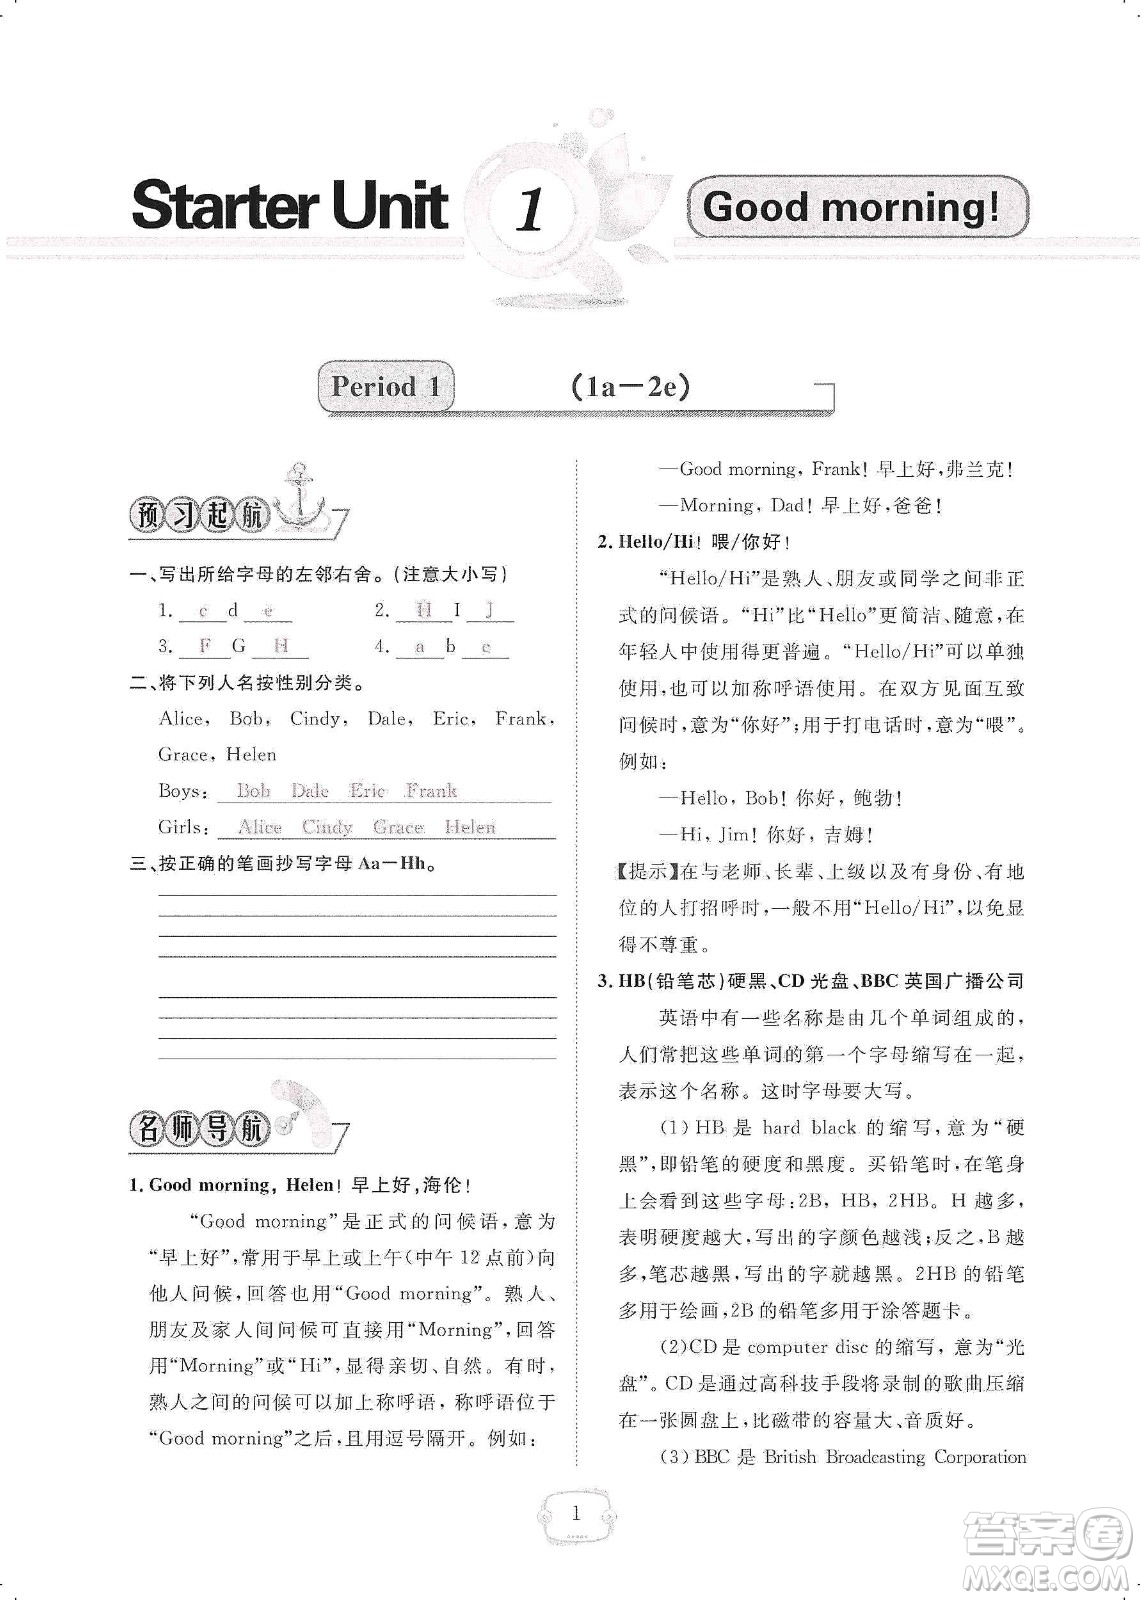 Starter Unit 1 Good morning!
Period 1 (1a—2e)
预习起航
一、写出所给字母的左邻右舍。(注意大小写)
1. c d e 2. H I J
3. F G H 4. a b c
二、将下列人名按性别分类。
Alice, Bob, Cindy, Dale, Eric, Frank,
Grace, Helen
Boys: Bob Dale Eric Frank
Girls: Alice Cindy Grace Helen
三、按正确的笔画抄写字母 Aa—Hh。
名师导航
1. Good morning, Helen! 早上好,海伦!
“Good morning”是正式的问候语,意为
“早上好”,常用于早上或上午(中午 12 点前)向
他人问候,回答也用“Good morning”。熟人、
朋友及家人间问候可直接用“Morning”,回答
用“Morning”或“Hi”,显得亲切、自然。有时,
熟人之间的问候可以加上称呼语,称呼语位于
“Good morning”之后,且用逗号隔开。例如:
—Good morning, Frank! 早上好,弗兰克!
—Morning, Dad! 早上好,爸爸!
2. Hello/Hi! 喂/你好!
“Hello/Hi”是熟人、朋友或同学之间非正
式的问候语。“Hi”比“Hello”更简洁、随意,在
年轻人中使用得更普遍。“Hello/Hi”可以单独
使用,也可以加称呼语使用。在双方见面互致
问候时,意为“你好”;用于打电话时,意为“喂”。
例如:
—Hello, Bob! 你好,鲍勃!
—Hi, Jim! 你好,吉姆!
【提示】在与老师、长辈、上级以及有身份、有地
位的人打招呼时,一般不用“Hello/Hi”,以免显
得不尊重。
3. HB(铅笔芯)硬黑、CD 光盘、BBC 英国广播公司
英语中有一些名称是由几个单词组成的,
人们常把这些单词的第一个字母缩写在一起,
表示这个名称。这时字母要大写。
(1) HB 是 hard black 的缩写,意为“硬
黑”,即铅笔的硬度和黑度。买铅笔时,在笔身
上会看到这些字母:2B, HB, 2HB。H 越多,
表明硬度越大,写出的字颜色越浅;反之,B 越
多,笔芯越黑,写出的字就越黑。2HB 的铅笔
多用于绘画,2B 的铅笔多用于涂答题卡。
(2)CD 是 computer disc 的缩写,意为“光
盘”。CD 是通过高科技手段将录制的歌曲压缩
在一张圆盘上,比磁带的容量大、音质好。
(3) BBC 是 British Broadcasting Corporation
1
答案圈
MXQE.COM